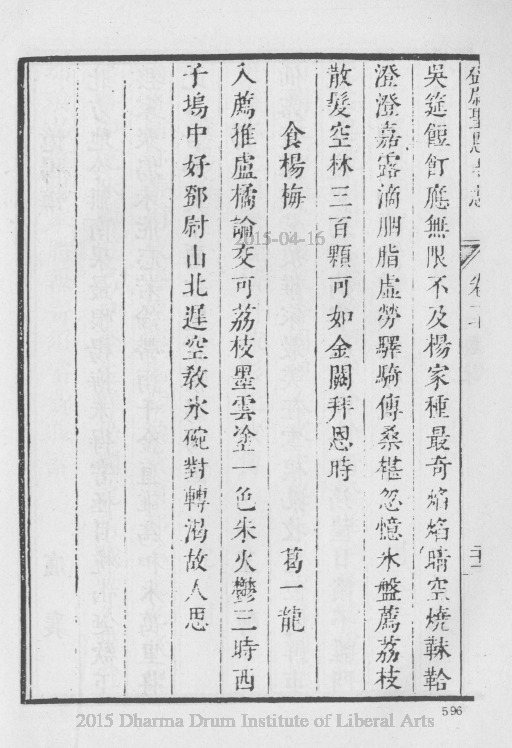 鄧尉聖恩寺志
卷十
二十二
吳筵飣餖應無限不及楊家種最奇焰焰晴空燒靺鞈
澄澄嘉露滴胭脂虛勞驛騎傳桑椹忽憶氷盤薦荔枝
散髮空林三百顆可如金闕拜恩時
食楊梅
葛一龍
入薦推盧橘論交可荔枝墨雲塗一色朱火鬱三時西
子塢中好鄧尉山北遲空敎氷碗對轉渴故人思
2015-04-16
596
2015 Dharma Drum Institute of Liberal Arts